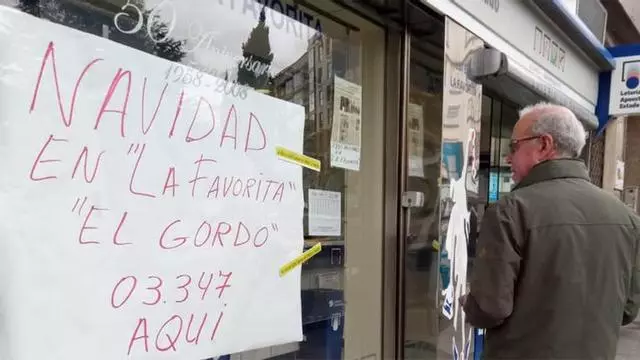 LA FAVORITA
50 Aniversario
1958-2008
NAVIDAD
EN "LA FAVORITA"
"EL GORDO"
03.347
AQUI
Loterías
Apuestas
Estado